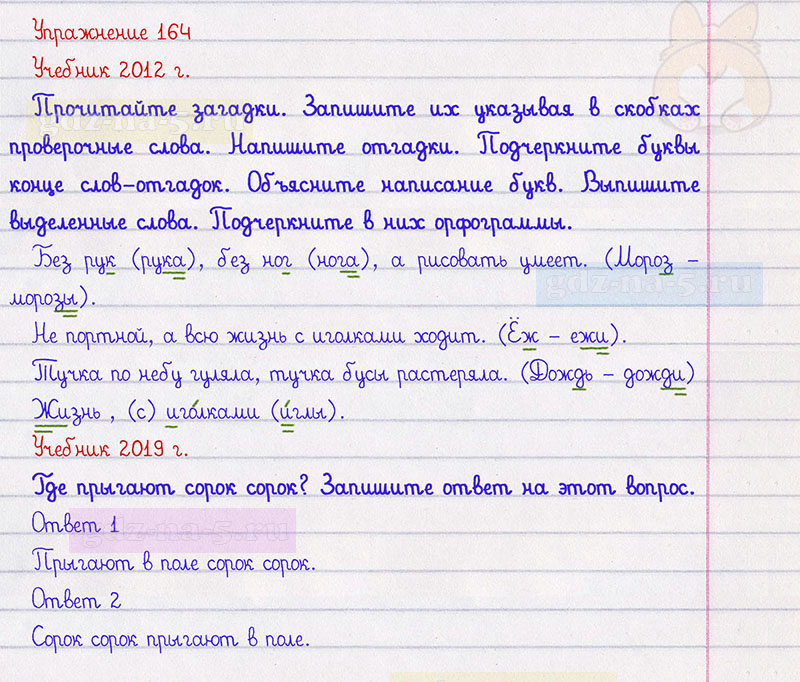 Упражнение 164
Учебник 2012 г.
Прочитайте загадки. Запишите их указывая в скобках
проверочные слова. Напишите отгадки. Подчеркните буквы
конце слов-отгадок. Объясните написание букв. Выпишите
выделенные слова. Подчеркните в них орфограммы.
Без рук (рука), без ног (нога), а рисовать умеет. (Мороз –
морозы).
Не портной, а всю жизнь с иголками ходит. (Ёж – ежи).
Тучка по небу гуляла, тучка бусы растеряла. (Дождь – дожди)
Жизнь , (с) иго́лками (и́глы).
Учебник 2019 г.
Где прыгают сорок сорок? Запишите ответ на этот вопрос.
Ответ 1
Прыгают в поле сорок сорок.
Ответ 2
Сорок сорок прыгают в поле.
gdz-na-5.ru
gdz-na-5.ru
gdz-na-5.ru